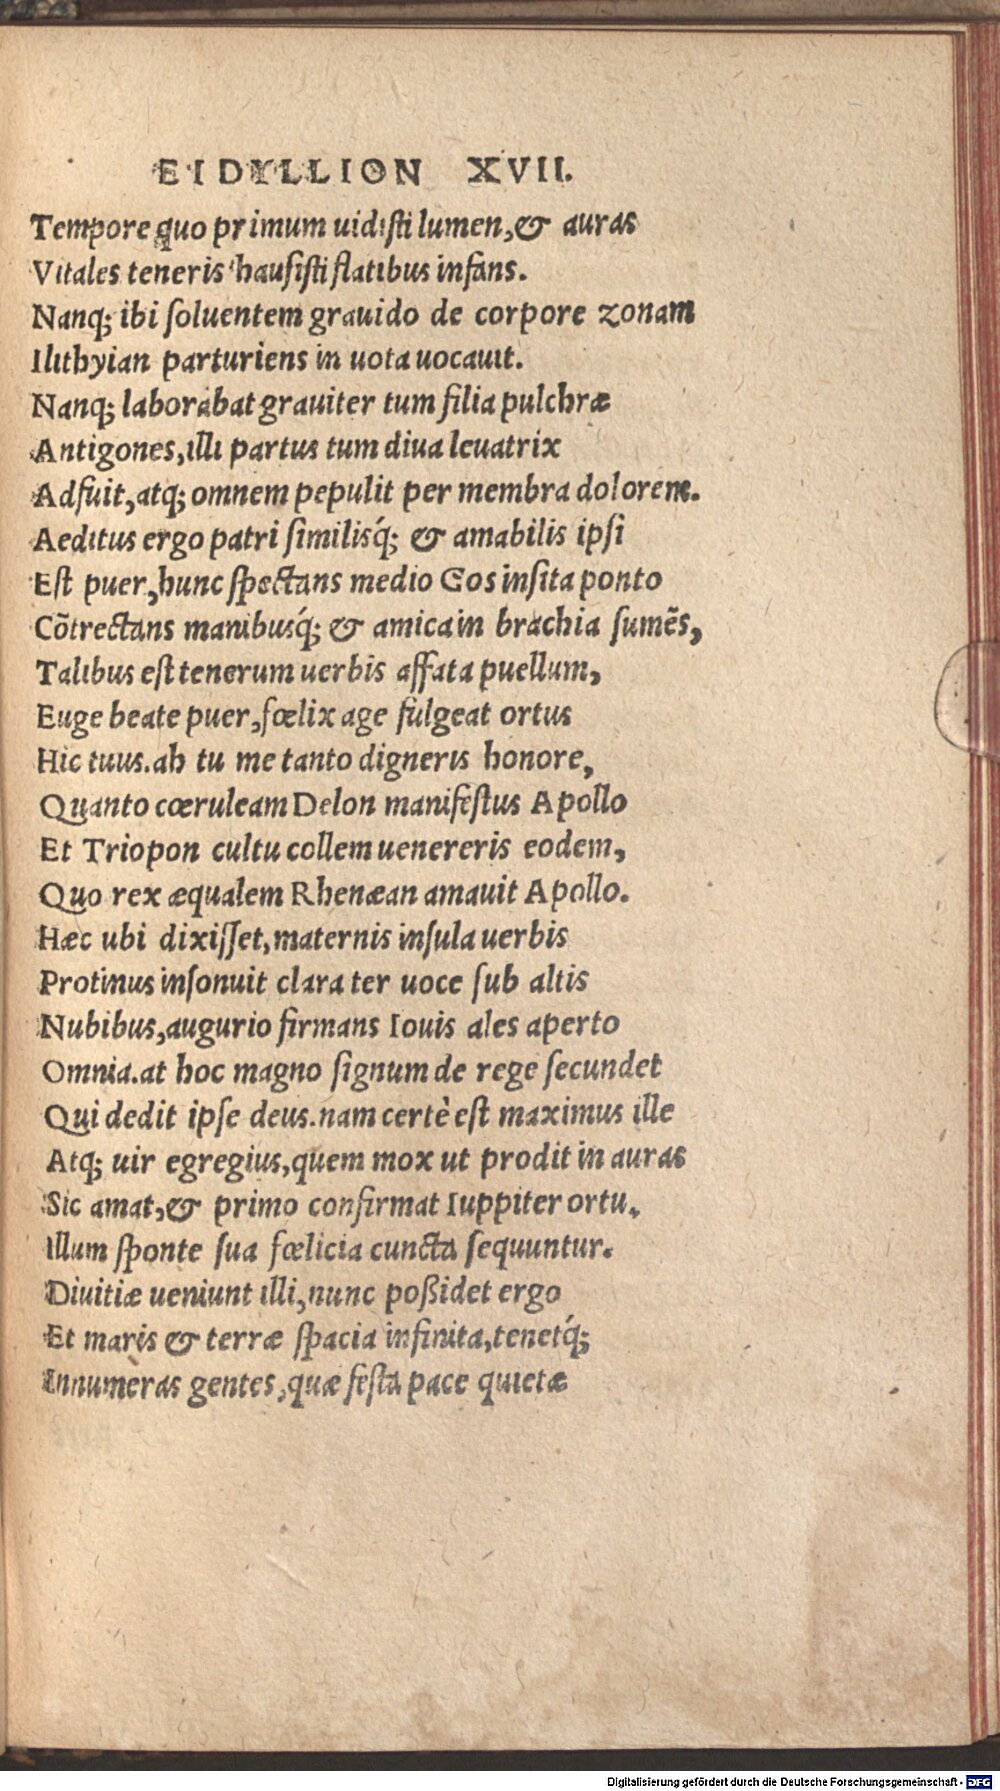 EIDYLLION XVII.
Tempore quo primum uidisti lumen, & auras
Vitales teneris hausisti flatibus infans.
Nanq; ibi soluentem grauido de corpore zonam
Ilithyian parturiens in uota uocauit.
Nanq; laborabat grauiter tum filia pulchræ
Antigones, illi partus tum diua leuatrix
Adfuit, atq; omnem pepulit per membra dolorem.
Aeditus ergo patri similisq́; & amabilis ipsi
Est puer, hunc spectans medio Cos insita ponto
Cõtrectans manibusq́; & amica in brachia sumẽs,
Talibus est tenerum uerbis affata puellum,
Euge beate puer, fœlix age fulgeat ortus
Hic tuus. ah tu me tanto digneris honore,
Quanto cœruleam Delon manifestus Apollo
Et Triopon cultu collem uenereris eodem,
Quo rex æqualem Rhenæan amauit Apollo.
Hæc ubi dixisset, maternis insula uerbis
Protinus insonuit clara ter uoce sub altis
Nubibus, augurio firmans Iouis ales aperto
Omnia. at hoc magno signum de rege secundet
Qui dedit ipse deus. nam certè est maximus ille
Atq; uir egregius, quem mox ut prodit in auras
Sic amat, & primo confirmat Iuppiter ortu.
Illum sponte sua fœlicia cuncta sequuntur.
Diuitiæ ueniunt illi, nunc poßidet ergo
Et maris & terræ spacia infinita, tenetq́;
Innumeras gentes, quæ festa pace quietæ
Digitalisierung gefördert durch die Deutsche Forschungsgemeinschaft - DFG